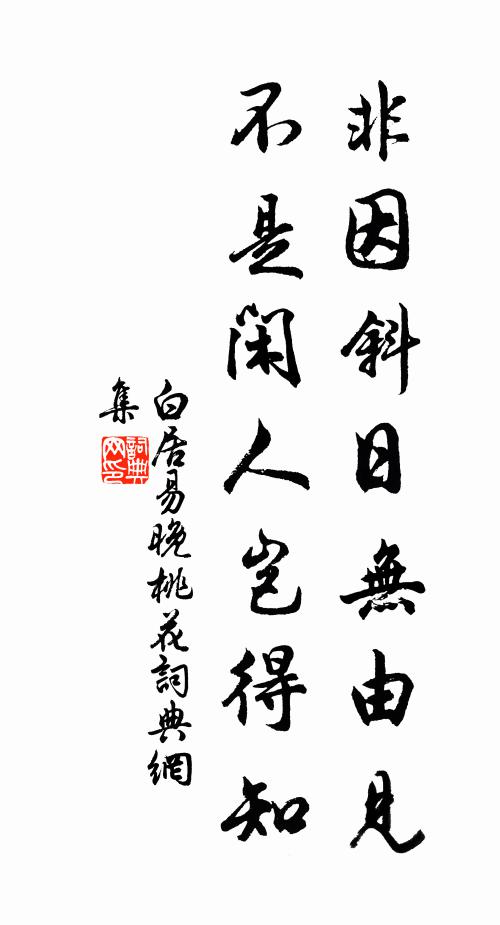 非因斜日無由見
不是閑人豈得知
白居易晚桃花詞典網
集
詞典網印